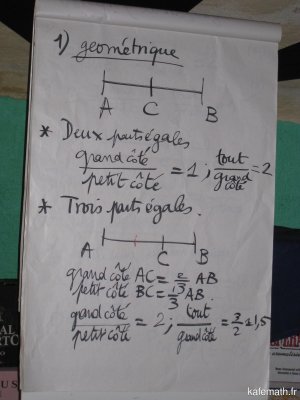 1) géométrique
A C B
* Deux parts égales
grand côté / petit côté = 1 ; tout / grand côté = 2
* Trois parts égales.
A C B
grand côté AC = 2/3 AB
petit côté BC = 1/3 AB.
grand côté / petit côté = 2 ; tout / grand côté = 3/2 = 1,5
katemath.fr